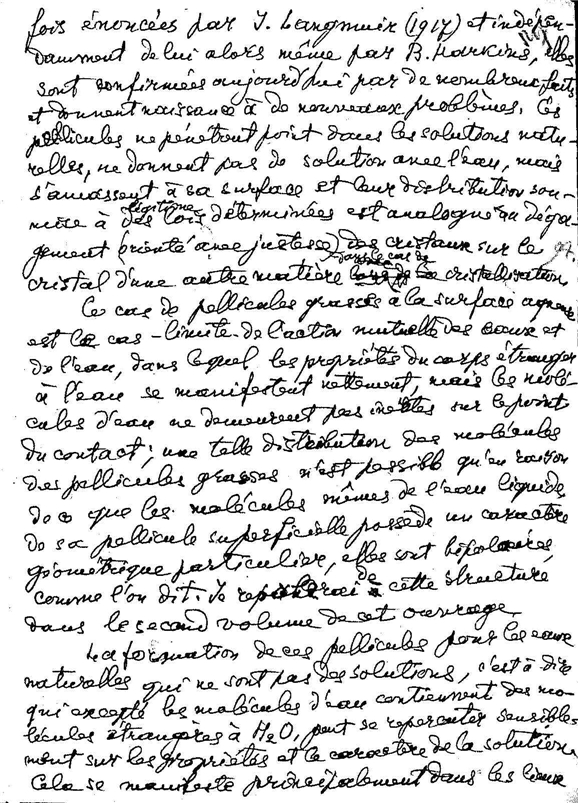 fois énoncées par I. Langmuir (1917) et indépen-
damment de lui alors même par B. Harkins, elles
sont confirmées aujourd'hui par de nombreux faits
et donnent naissance à de nouveaux problèmes. Ces
pellicules ne pénétrent point dans les solutions natu-
relles, ne donnent pas de solution avec l'eau, mais
s'amassent à sa surface et leur distribution sou-
mise à des lois déterminées est analogue au déga-
gement (orienté avec justesse) des cristaux sur le
cristal d'une autre matière dans le cas de cristallisation
Le cas de pellicules grasses à la surface aqueuse
est le cas-limite de l'action mutuelle des eaux et
de l'eau, dans lequel les propriétés du corps étranger
à l'eau se manifestent nettement, mais les molé-
cules d'eau ne demeurent pas inertes sur le point
du contact; une telle distribution des molécules
des pellicules grasses n'est possible qu'en raison
de ce que les molécules mêmes de l'eau liquide
de sa pellicule superficielle possède un caractère
géométrique particulier, elles sont bipolaires,
comme l'on dit. Je reparlerai de cette structure
dans le second volume de cet ouvrage
La formation de ces pellicules pour les eaux
naturelles qui ne sont pas des solutions, c'est à dire
qui excepté les molécules d'eau contiennent des mo-
lécules étrangères à H2O, peut se reporcuter sensible-
ment sur les propriétés et le caractère de la solution.
Cela se manifeste principalement dans les lieux